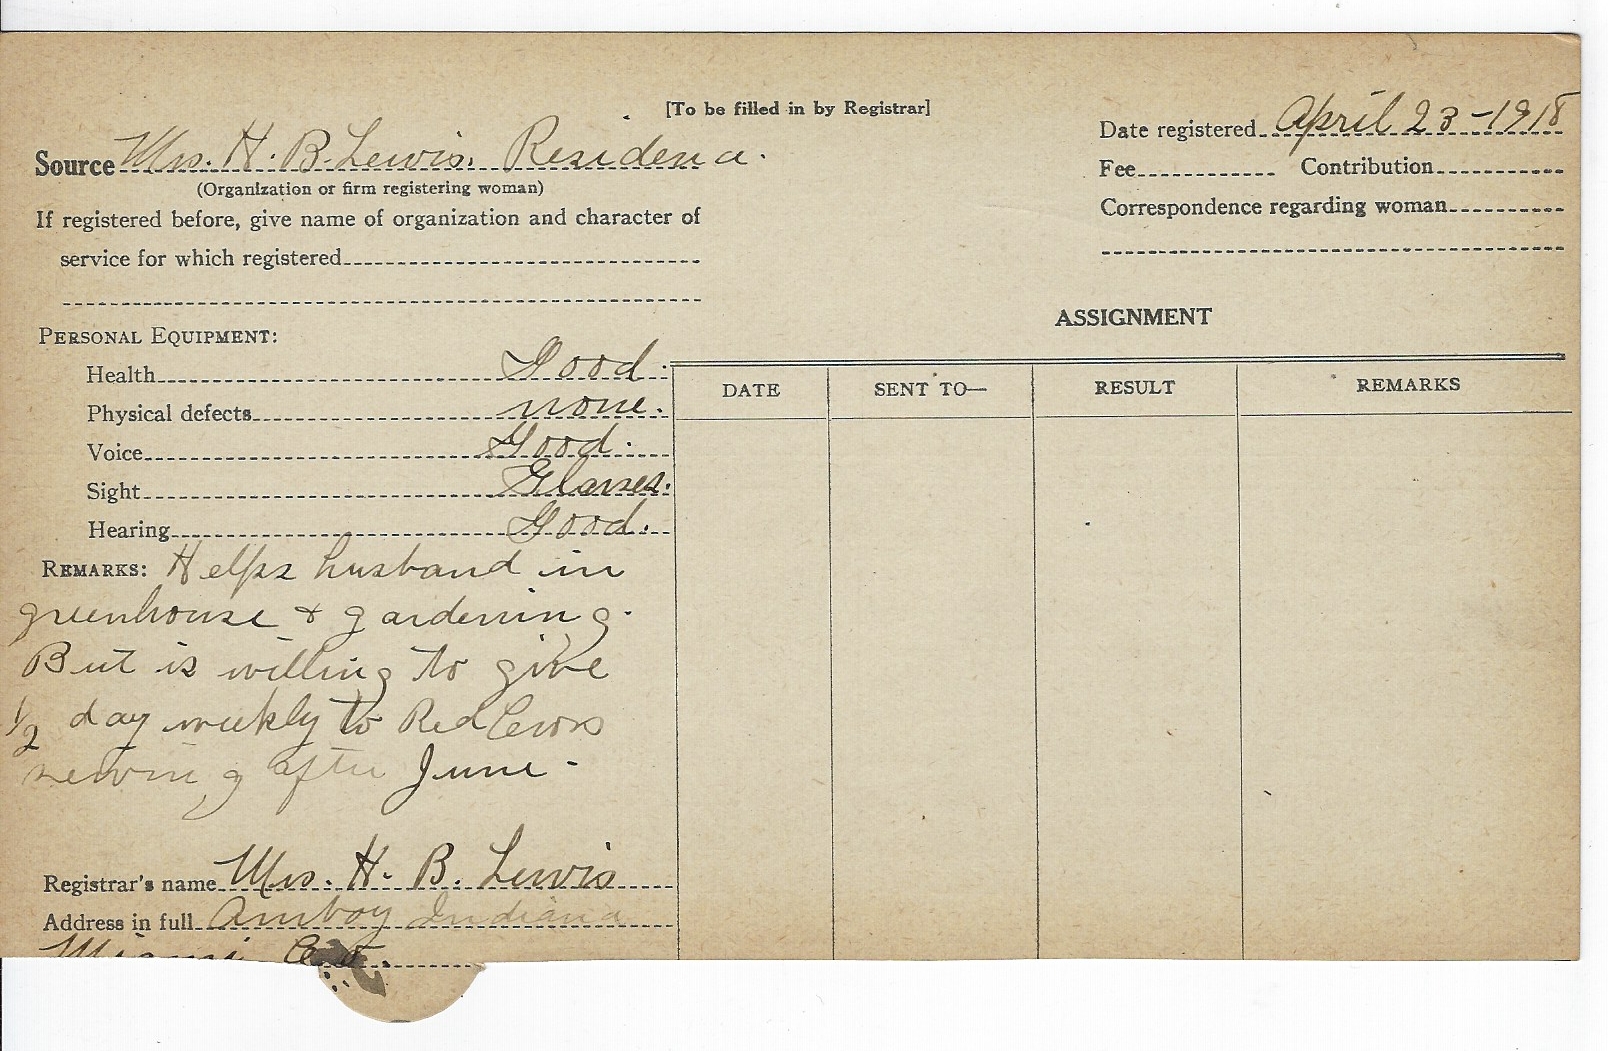 [To be filled in by Registrar]
Date registered April 23-1918
Source Mrs. H. B. Lewis. Residence.
(Organization or firm registering woman)
Fee Contribution
If registered before, give name of organization and character of
Correspondence regarding woman
service for which registered
ASSIGNMENT
PERSONAL EQUIPMENT:
Health Good.
Physical defects none.
Voice Good.
Sight Glasses.
Hearing Good.
DATE SENT TO— RESULT REMARKS
REMARKS: Helps husband in
greenhouse & gardening.
But is willing to give
1/2 day weekly to Red Cross
sewing after June -
Registrar's name Mrs. H. B. Lewis
Address in full Amboy Indiana
Miami Co.